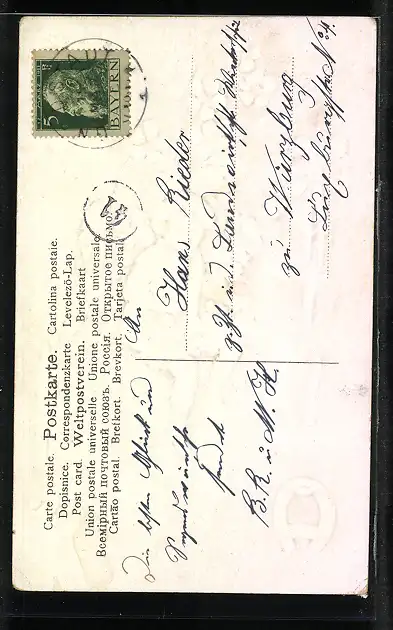 Carte postale. Postkarte. Cartolina postale.
Dopisnice. Correspondenzkarte. Levelező-Lap.
Post card. Weltpostverein. Briefkaart
Union postale universelle Unione postale universale.
Всемірный почтовый союзъ. Россія. Открытое письмо.
Cartão postal. Brefkort. Brevkort. Tarjeta postal.
5
BAYERN
Die besten Glück und
Segenswünsche
sendet
B. R. u M. K.
An
Hans Rieder
z. Zt. ind. Landwirtschft.
zu Würzburg